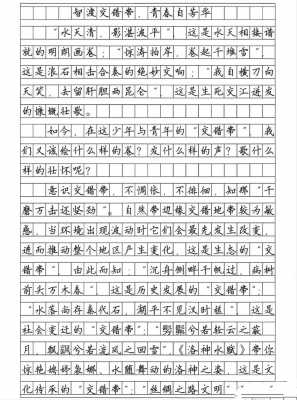 智渡交错带,青春自芳华
“水天清,影湛波平”,这是水天相接谱
就的明朗画卷;“惊涛拍岸,卷起千堆雪”,
这是浪石相击合奏的绝妙交响;“我自横刀向
天笑,去留肝胆两昆仑”,这是生死交汇迸发
的慷慨壮歌。
如今,在这少年与青年的“交错带”,我
们又该绘什么样的卷?发什么样的声?歌什么
样的壮怀呢?
意识交错带,不惆怅,不徘徊,知哪“千
磨万击还坚劲”。自然带边缘交错地带较为敏
感,当环境出现波动时它们会最先发生改变,
进而推动整个地区产生变化,这是生态的“交
错带”,由此而知;“沉舟侧畔千帆过,病树
前头万木春”,这是历史发展的“交错带”,
“水落而存秦代石,潮平不见汉时槎”这是
社会变迁的“交错带”;“髣髴兮若轻云之蔽
月,飘飖兮若流风之回雪”,《洛神水赋》带你
惊艳
,水随舞动的洛神之姿,这是文
化传承的“交错带”;“丝绸之路文明”“